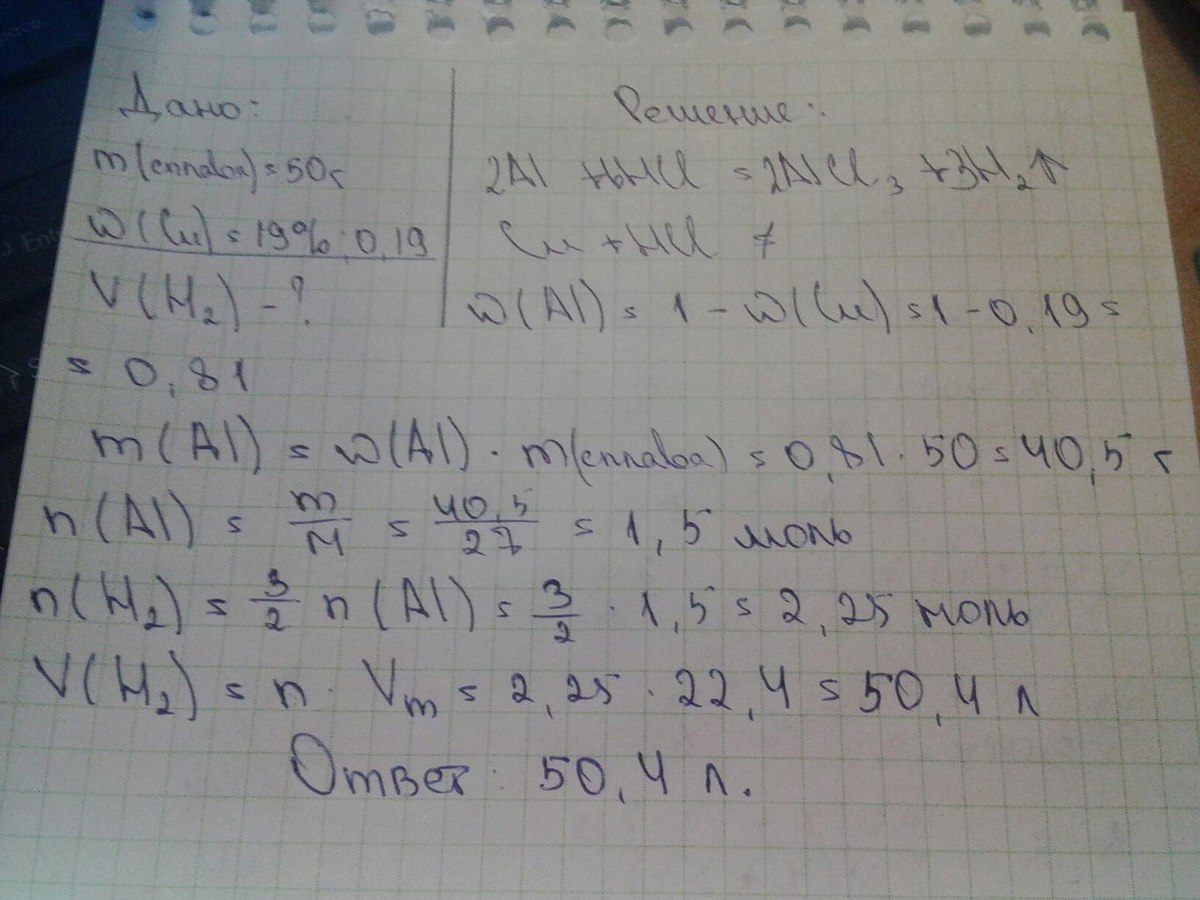 Дано:
m(сплава) = 50г
ω(Cu) = 19%; 0,19
V(H₂) - ?
Решение:
2Al + 6HCl = 2AlCl₃ + 3H₂↑
Cu + HCl ≠
ω(Al) = 1 - ω(Cu) = 1 - 0,19 =
= 0,81
m(Al) = ω(Al) · m(сплава) = 0,81 · 50 = 40,5 г
n(Al) = m/M = 40,5/27 = 1,5 моль
n(H₂) = 3/2 n(Al) = 3/2 · 1,5 = 2,25 моль
V(H₂) = n · Vm = 2,25 · 22,4 = 50,4 л
Ответ: 50,4 л.